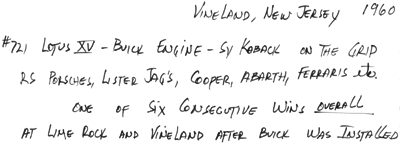 VINELAND, NEW JERSEY 1960
#721 LOTUS XV - BUICK ENGINE - SY KABACK ON THE GRID
RS PORSCHES, LISTER JAG'S, COOPER, ABARTH, FERRARIS etc.
ONE OF SIX CONSECUTIVE WINS OVERALL
AT LIME ROCK AND VINELAND AFTER BUICK WAS INSTALLED